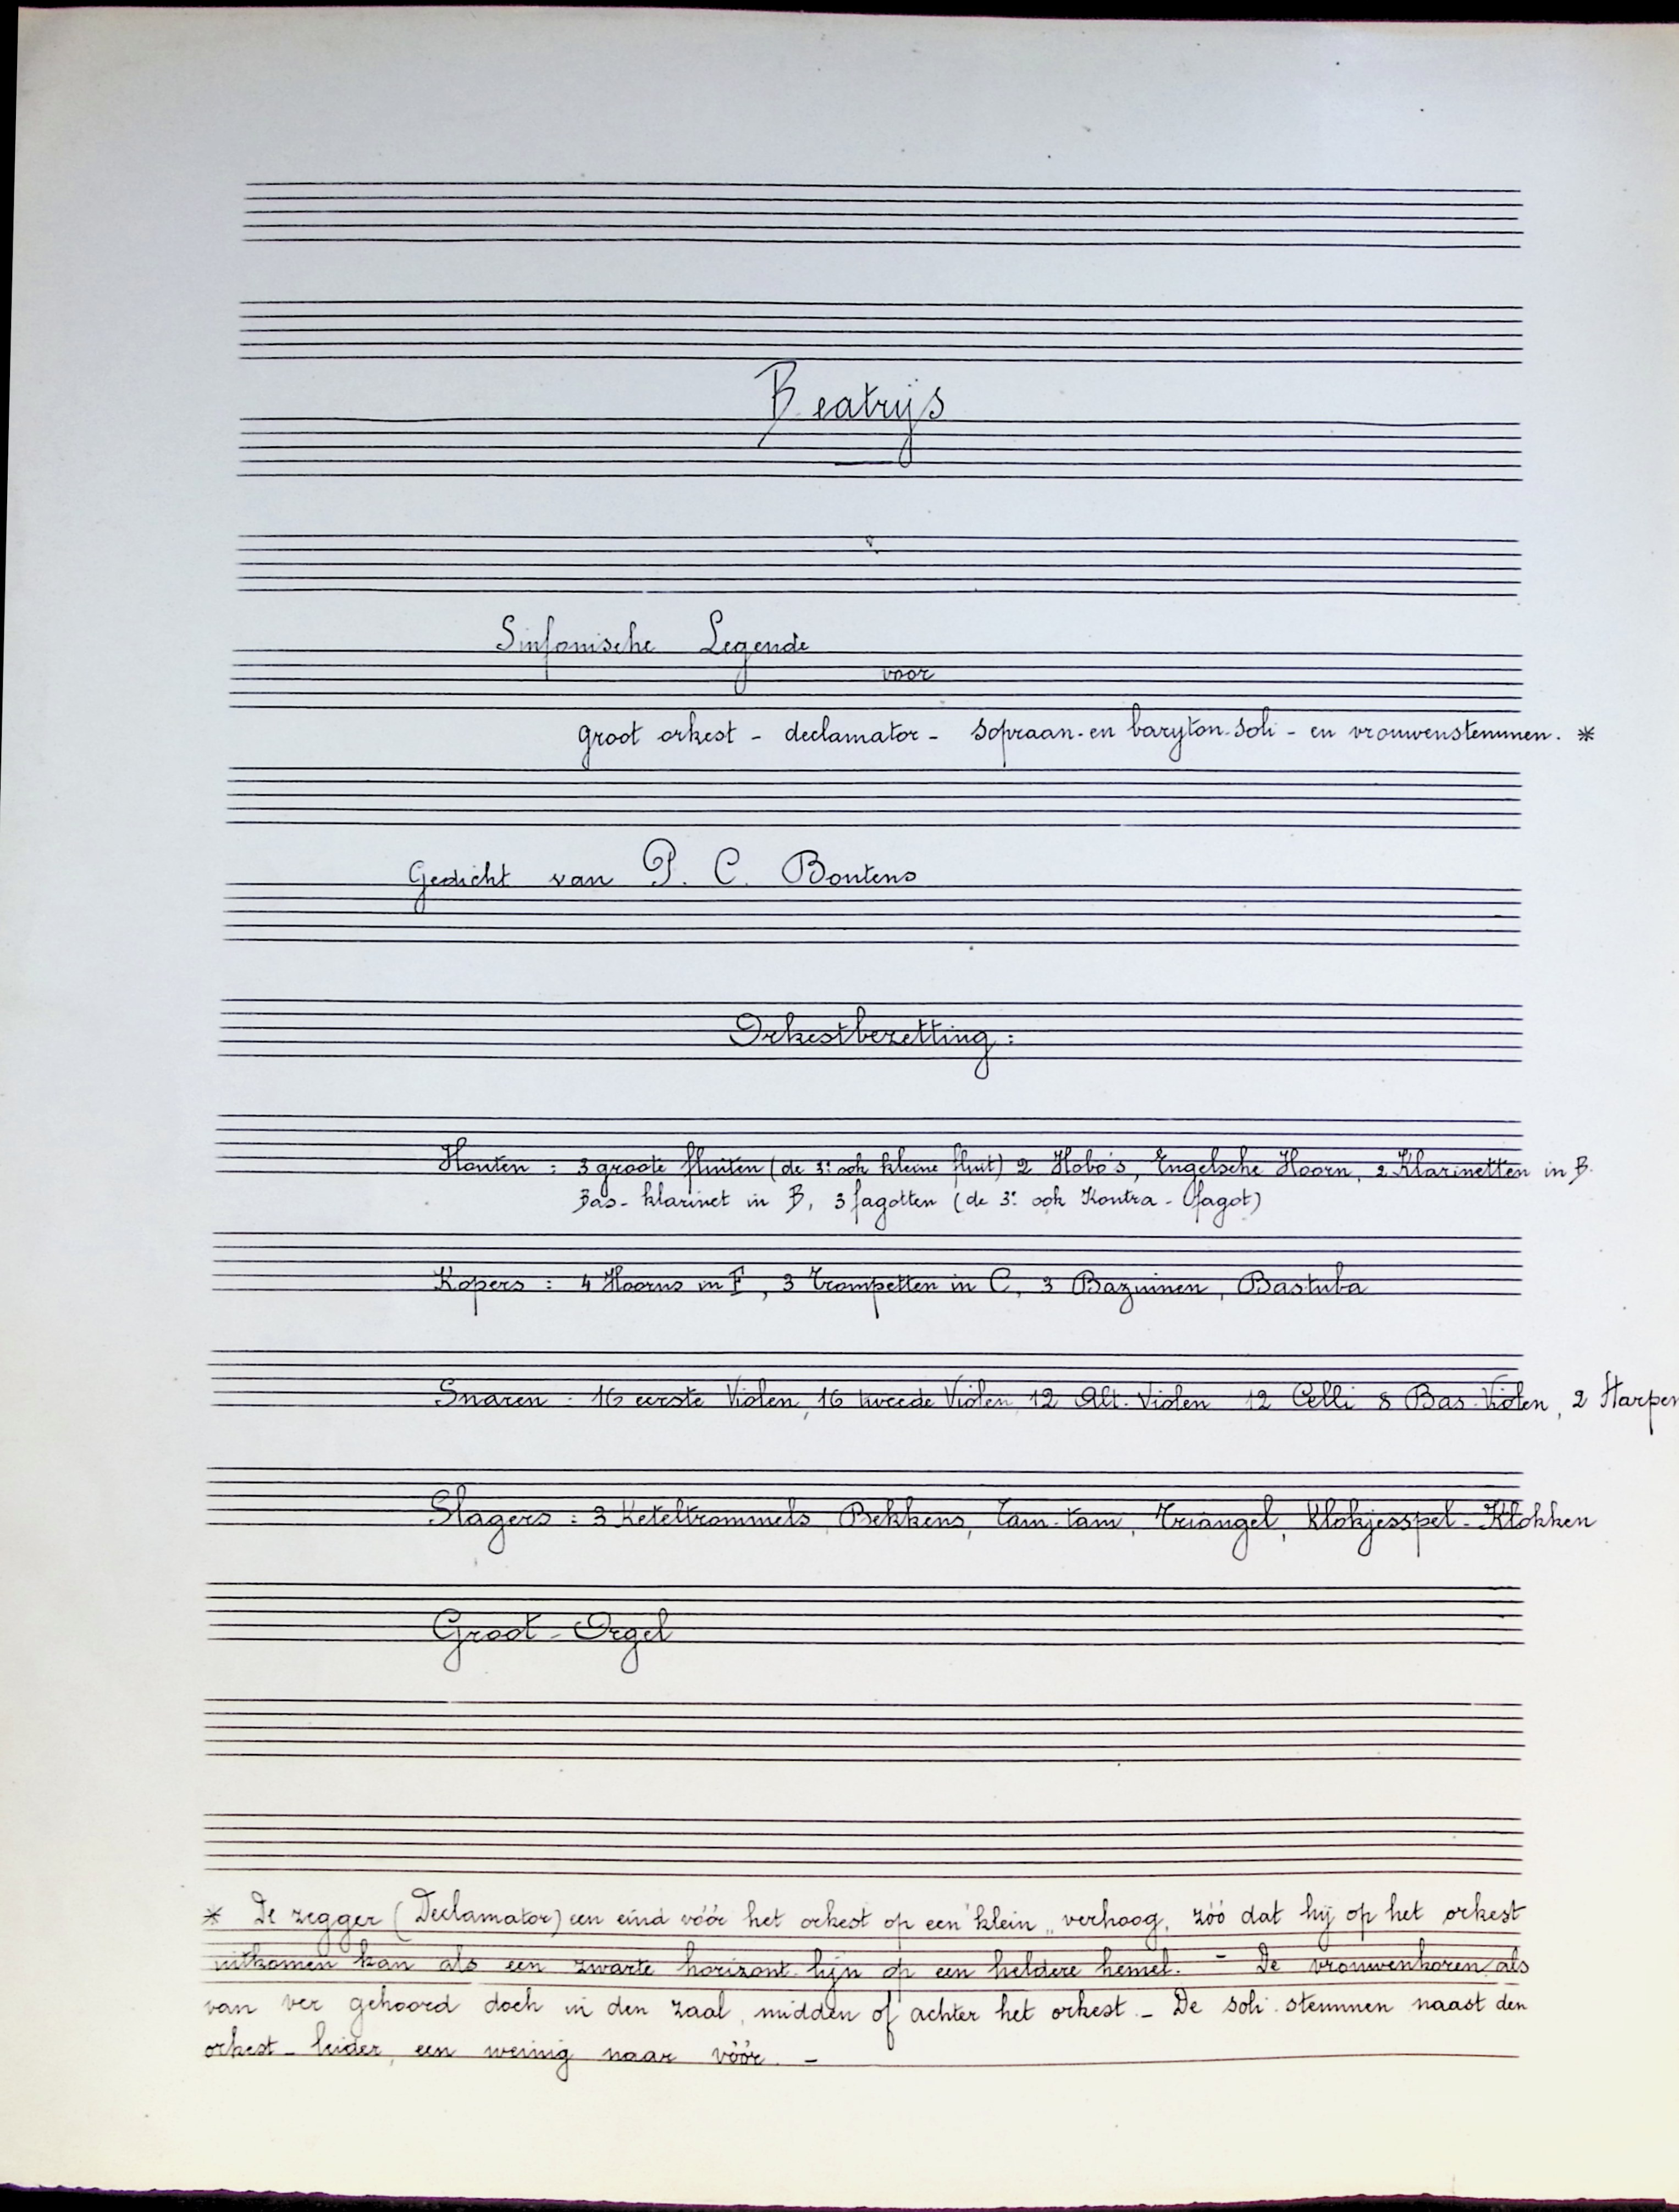 Beatrijs
Sinfonische Legende
voor
groot orkest - declamator - sopraan-en baryton-soli - en vrouwenstemmen. *
Gedicht van P. C. Boutens
Orkestbezetting:
Houten : 3 groote fluiten (de 3e ook kleine fluit) 2 Hobo's, Engelsche Hoorn, 2 Klarinetten in B.
Bas-klarinet in B, 3 fagotten (de 3e ook Kontra-fagot)
Kopers : 4 Hoorns in F, 3 Trompetten in C, 3 Bazuinen, Bastuba
Snaren : 16 eerste Violen, 16 tweede Violen 12 Alt-Violen 12 Celli 8 Bas-Violen, 2 Harpen
Slagers : 3 Keteltrommels, Bekkens, Tam-tam, Triangel, Klokjesspel - Klokken
Groot-Orgel
* De zegger (Declamator) een eind vóór het orkest op een klein verhoog, zóó dat hij op het orkest
uitkomen kan als een zwarte horizont-lijn op een heldere hemel. - De vrouwenkoren als
van ver gehoord doch in den zaal, midden of achter het orkest. - De soli-stemmen naast den
orkest-leider, een weinig naar vóór. -